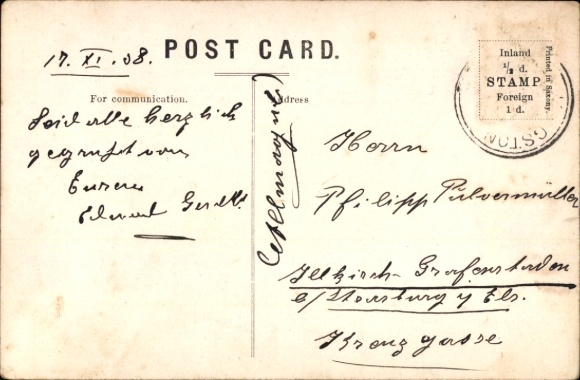 17. XI. 08.
POST CARD.
For communication.
Address
Seid alle herzlich
gegrüsst von
Eurem
Eduard
Allemagne
Herrn
Philipp Pulvermüller
Illkirch-Grafenstaden
b/Strassburg i/Els.
Kreuzgasse
Inland
½ d.
STAMP
Foreign
1 d.
Printed in Saxony
GSTON